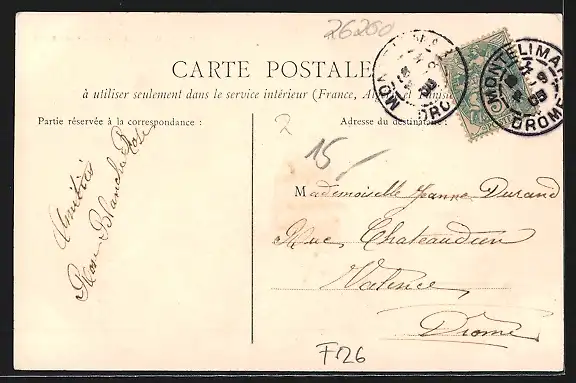 26200
CARTE POSTALE
à utiliser seulement dans le service intérieur (France, Algérie et Tunisie
Partie réservée à la correspondance :
Adresse du destinataire :
15
Amitiés
Rose Blanche Rose
Mademoiselle Jeanne Durand
Rue Chateaudun
Valence
Drome
F26
MONTÉLIMAR
DROME